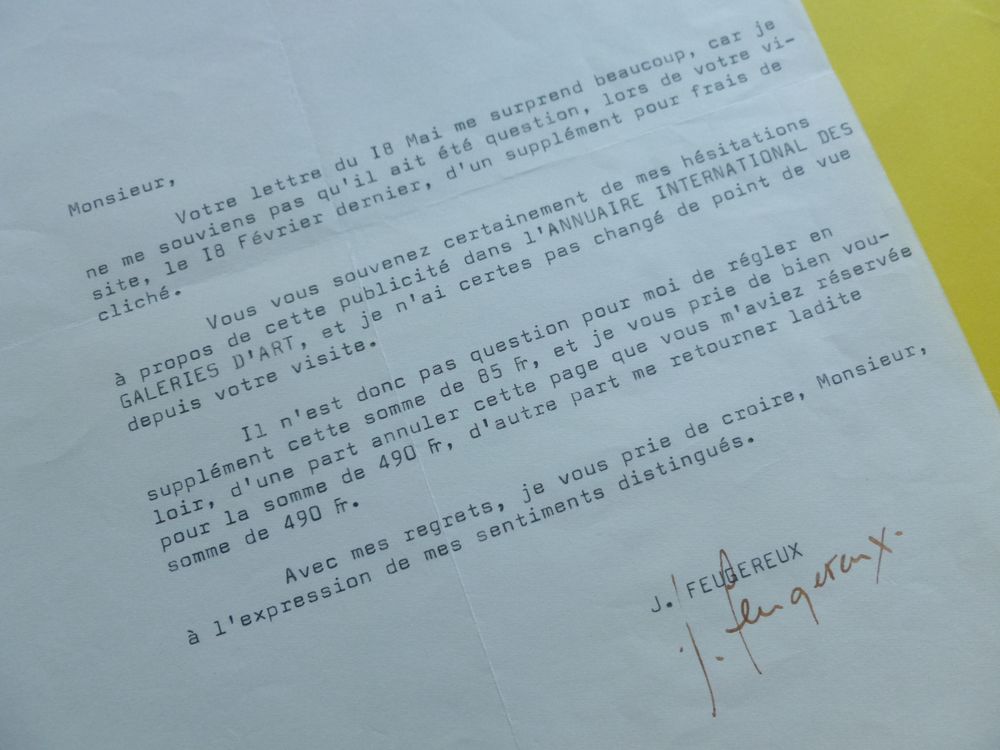 Monsieur,
Votre lettre du I8 Mai me surprend beaucoup, car je
ne me souviens pas qu'il ait été question, lors de votre vi-
site, le I8 Février dernier, d'un supplément pour frais de
cliché.
Vous vous souvenez certainement de mes hésitations
à propos de cette publicité dans l'ANNUAIRE INTERNATIONAL DES
GALERIES D'ART, et je n'ai certes pas changé de point de vue
depuis votre visite.
Il n'est donc pas question pour moi de régler en
supplément cette somme de 85 Fr, et je vous prie de bien vou-
loir, d'une part annuler cette page que vous m'aviez réservée
pour la somme de 490 Fr, d'autre part me retourner ladite
somme de 490 Fr.
Avec mes regrets, je vous prie de croire, Monsieur,
à l'expression de mes sentiments distingués.
J. FEUGEREUX
J. Feugereux.